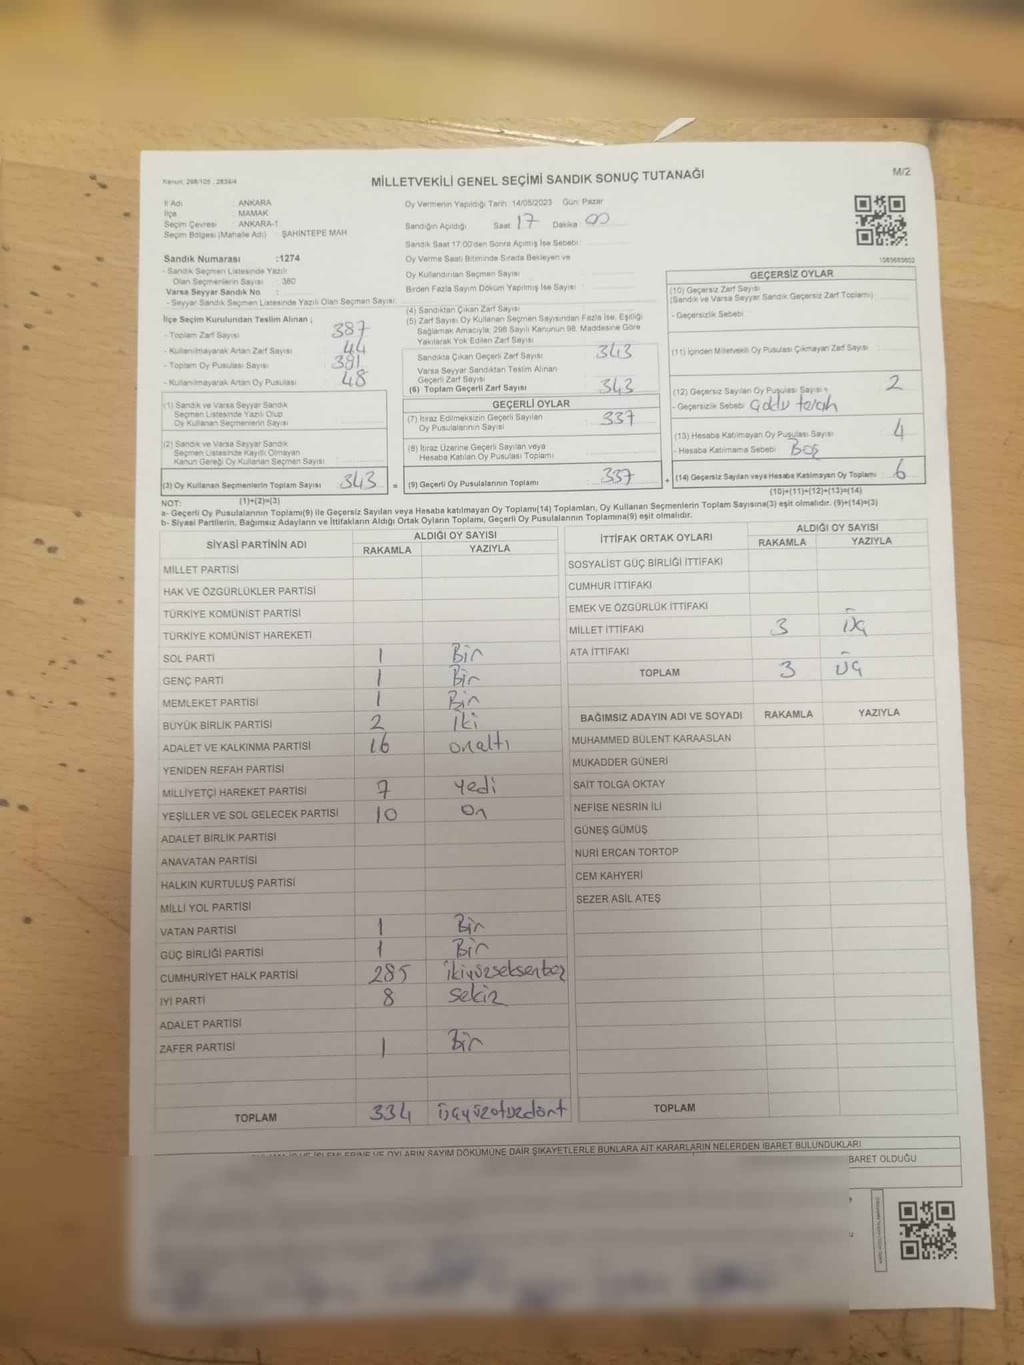 Kanun: 298/105 , 2839/4
MİLLETVEKİLİ GENEL SEÇİMİ SANDIK SONUÇ TUTANAĞI
M/2
İl Adı ANKARA
İlçe MAMAK
Seçim Çevresi ANKARA-1
Seçim Bölgesi (Mahalle Adı) : ŞAHİNTEPE MAH
Oy Vermenin Yapıldığı Tarih: 14/05/2023 Gün: Pazar
Sandığın Açıldığı Saat 17 Dakika 00
Sandık Saat 17:00'den Sonra Açılmış İse Sebebi
Oy Verme Saati Bitiminde Sırada Bekleyen ve
Oy Kullandırılan Seçmen Sayısı
Birden Fazla Sayım Döküm Yapılmış İse Sayısı
Sandık Numarası :1274
- Sandık Seçmen Listesinde Yazılı
Olan Seçmen Sayısı : 380
Varsa Seyyar Sandık No :
- Seyyar Sandık Seçmen Listesinde Yazılı Olan Seçmen Sayısı:
İlçe Seçim Kurulundan Teslim Alınan ;
- Toplam Zarf Sayısı 387
- Kullanılmayarak Artan Zarf Sayısı 44
- Toplam Oy Pusulası Sayısı 391
- Kullanılmayarak Artan Oy Pusulası 48
(1) Sandık ve Varsa Seyyar Sandık
Seçmen Listesinde Yazılı Olup
Oy Kullanan Seçmenlerin Sayısı
(2) Sandık ve Varsa Seyyar Sandık
Seçmen Listesinde Kayıtlı Olmayan
Kanun Gereği Oy Kullanan Seçmen Sayısı
(3) Oy Kullanan Seçmenlerin Toplam Sayısı 343 =
(1)+(2)=(3)
(4) Sandıktan Çıkan Zarf Sayısı
(5) Zarf Sayısı Oy Kullanan Seçmen Sayısından Fazla İse, Eşitliği
Sağlamak Amacıyla, 298 Sayılı Kanunun 98. Maddesine Göre
Yakılarak Yok Edilen Zarf Sayısı
Sandıkta Çıkan Geçerli Zarf Sayısı 343
Varsa Seyyar Sandıktan Teslim Alınan
Geçerli Zarf Sayısı
(6) Toplam Geçerli Zarf Sayısı 343
GEÇERLİ OYLAR
(7) İtiraz Edilmeksizin Geçerli Sayılan
Oy Pusulalarının Sayısı 337
(8) İtiraz Üzerine Geçerli Sayılan veya
Hesaba Katılan Oy Pusulası Toplamı
(9) Geçerli Oy Pusulalarının Toplamı 337 +
GEÇERSİZ OYLAR
(10) Geçersiz Zarf Sayısı
(Sandık ve Varsa Seyyar Sandık Geçersiz Zarf Toplamı)
- Geçersizlik Sebebi
(11) İçinden Milletvekili Oy Pusulası Çıkmayan Zarf Sayısı
(12) Geçersiz Sayılan Oy Pusulası Sayısı 2
- Geçersizlik Sebebi Çoklu tercih
(13) Hesaba Katılmayan Oy Pusulası Sayısı 4
- Hesaba Katılmama Sebebi Boş
(14) Geçersiz Sayılan veya Hesaba Katılmayan Oy Toplamı 6
(10)+(11)+(12)+(13)=(14)
NOT:
a- Geçerli Oy Pusulalarının Toplamı(9) ile Geçersiz Sayılan veya Hesaba katılmayan Oy Toplamı(14) Toplamları, Oy Kullanan Seçmenlerin Toplam Sayısına(3) eşit olmalıdır. (9)+(14)=(3)
b- Siyasi Partilerin, Bağımsız Adayların ve İttifakların Aldığı Ortak Oyların Toplamı, Geçerli Oy Pusulalarının Toplamına(9) eşit olmalıdır.
SİYASİ PARTİNİN ADI ALDIĞI OY SAYISI
RAKAMLA YAZIYLA
MİLLET PARTİSİ
HAK VE ÖZGÜRLÜKLER PARTİSİ
TÜRKİYE KOMÜNİST PARTİSİ
TÜRKİYE KOMÜNİST HAREKETİ
SOL PARTİ 1 Bir
GENÇ PARTİ 1 Bir
MEMLEKET PARTİSİ 1 Bir
BÜYÜK BİRLİK PARTİSİ 2 iki
ADALET VE KALKINMA PARTİSİ 16 onaltı
YENİDEN REFAH PARTİSİ
MİLLİYETÇİ HAREKET PARTİSİ 7 yedi
YEŞİLLER VE SOL GELECEK PARTİSİ 10 on
ADALET BİRLİK PARTİSİ
ANAVATAN PARTİSİ
HALKIN KURTULUŞ PARTİSİ
MİLLİ YOL PARTİSİ
VATAN PARTİSİ 1 Bir
GÜÇ BİRLİĞİ PARTİSİ 1 Bir
CUMHURİYET HALK PARTİSİ 285 ikiyüzseksenbeş
İYİ PARTİ 8 sekiz
ADALET PARTİSİ
ZAFER PARTİSİ 1 Bir
TOPLAM 334 üçyüzotuzdört
İTTİFAK ORTAK OYLARI ALDIĞI OY SAYISI
RAKAMLA YAZIYLA
SOSYALİST GÜÇ BİRLİĞİ İTTİFAKI
CUMHUR İTTİFAKI
EMEK VE ÖZGÜRLÜK İTTİFAKI
MİLLET İTTİFAKI 3 üç
ATA İTTİFAKI
TOPLAM 3 üç
BAĞIMSIZ ADAYIN ADI VE SOYADI RAKAMLA YAZIYLA
MUHAMMED BÜLENT KARAASLAN
MUKADDER GÜNERİ
SAİT TOLGA OKTAY
NEFİSE NESRİN İLİ
GÜNEŞ GÜMÜŞ
NURİ ERCAN TORTOP
CEM KAHYERİ
SEZER ASİL ATEŞ
TOPLAM
VE OYLARIN SAYIM DÖKÜMÜNE DAİR ŞİKAYETLERLE BUNLARA AİT KARARLARIN NELERDEN İBARET BULUNDUKLARI
BARET OLDUĞU